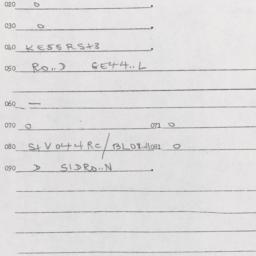 020 0
030 0
040 KESSRS+3
050 RO..D GE44..L
060 —
070 0 071 0
080 S+V044RC/BLDR 081 0
090 D SIDRO..N